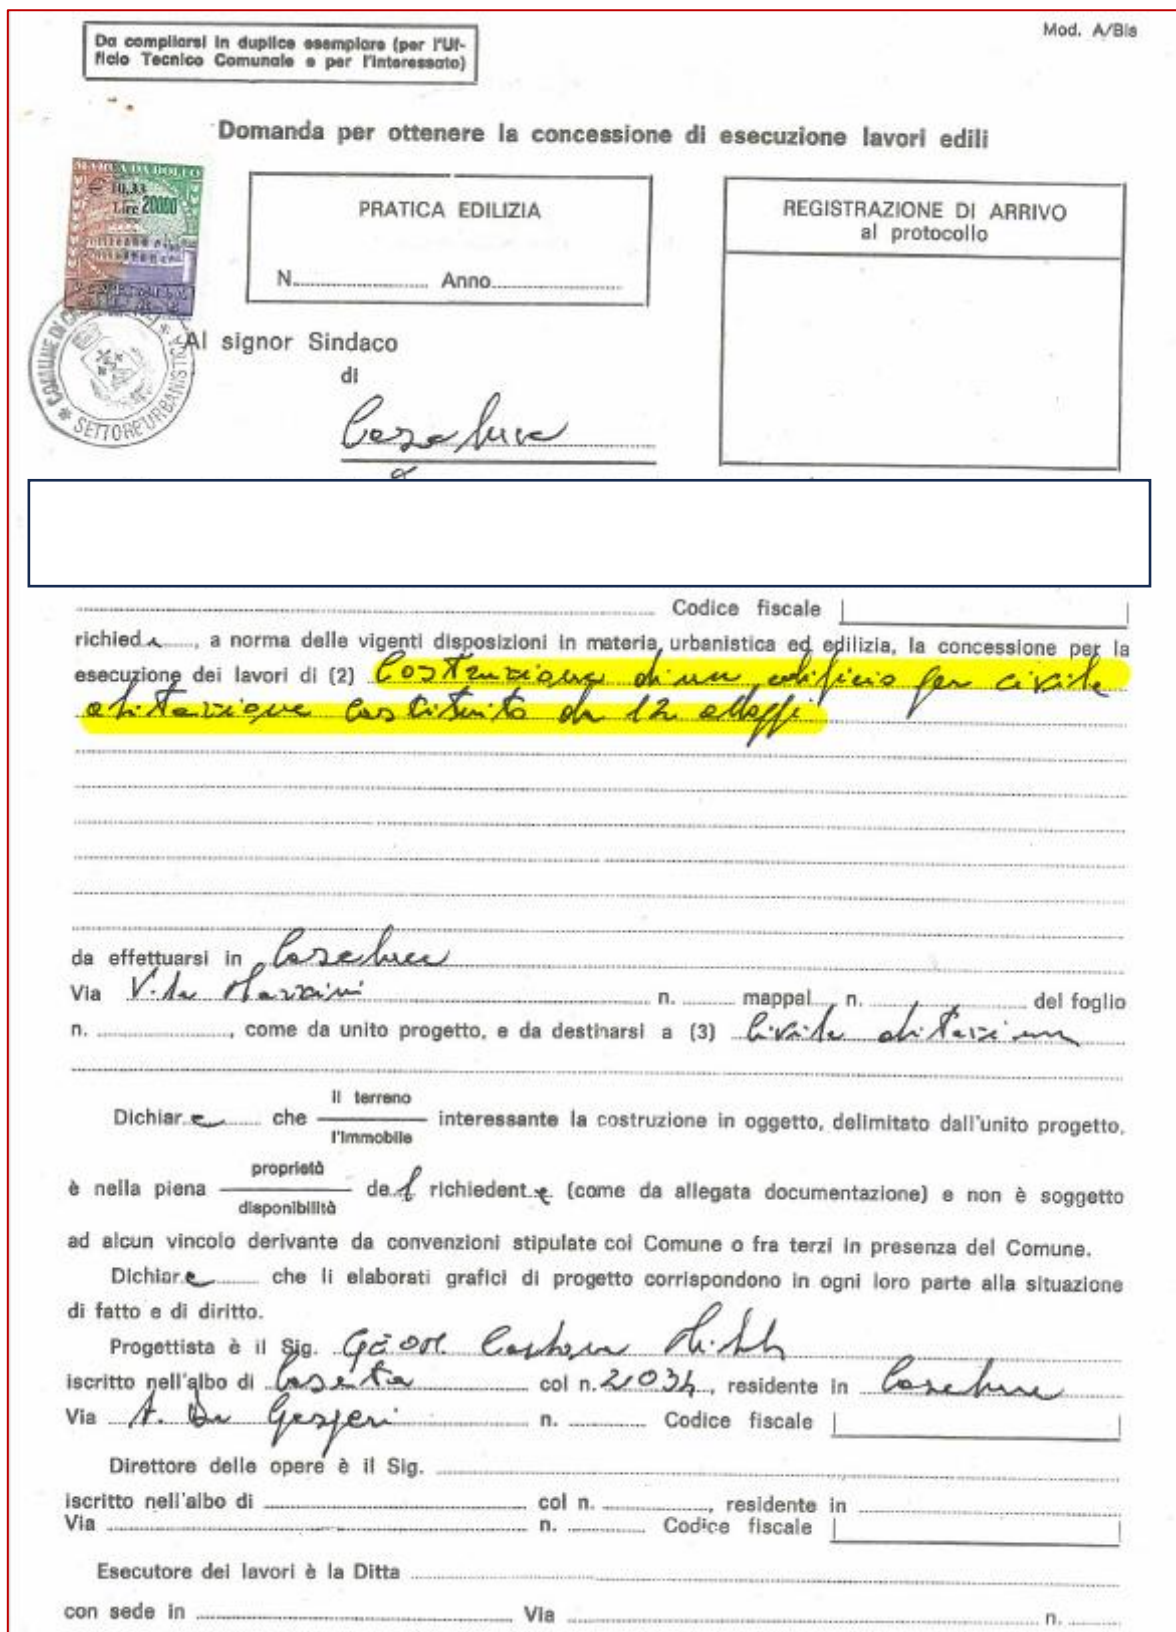 Mod. A/Bis
Da compilarsi in duplice esemplare (per l'Uf-
ficio Tecnico Comunale e per l'interessato)
Domanda per ottenere la concessione di esecuzione lavori edili
MARCA DA BOLLO
€ 10,33
Lire 20000
PRATICA EDILIZIA
N. Anno
REGISTRAZIONE DI ARRIVO
al protocollo
COMUNE DI
SETTORE URBANISTICA
Al signor Sindaco
di
Casaluce
Codice fiscale
richiede, a norma delle vigenti disposizioni in materia urbanistica ed edilizia, la concessione per la
esecuzione dei lavori di (2) Costruzione di un edificio per civile
abitazione costituito da 12 alloggi
da effettuarsi in Casaluce
Via V.le Mazzini n. mappal n. del foglio
n. , come da unito progetto, e da destinarsi a (3) Civile abitazione
Il terreno
Dichiar e che interessante la costruzione in oggetto, delimitato dall'unito progetto,
l'immobile
proprietà
è nella piena del richiedente (come da allegata documentazione) e non è soggetto
disponibilità
ad alcun vincolo derivante da convenzioni stipulate col Comune o fra terzi in presenza del Comune.
Dichiar e che li elaborati grafici di progetto corrispondono in ogni loro parte alla situazione
di fatto e di diritto.
Progettista è il Sig. Geom.
iscritto nell'albo di Caserta col n. 2034, residente in Casaluce
Via A. De Gasperi n. Codice fiscale
Direttore delle opere è il Sig.
iscritto nell'albo di col n. , residente in
Via n. Codice fiscale
Esecutore dei lavori è la Ditta
con sede in Via n.